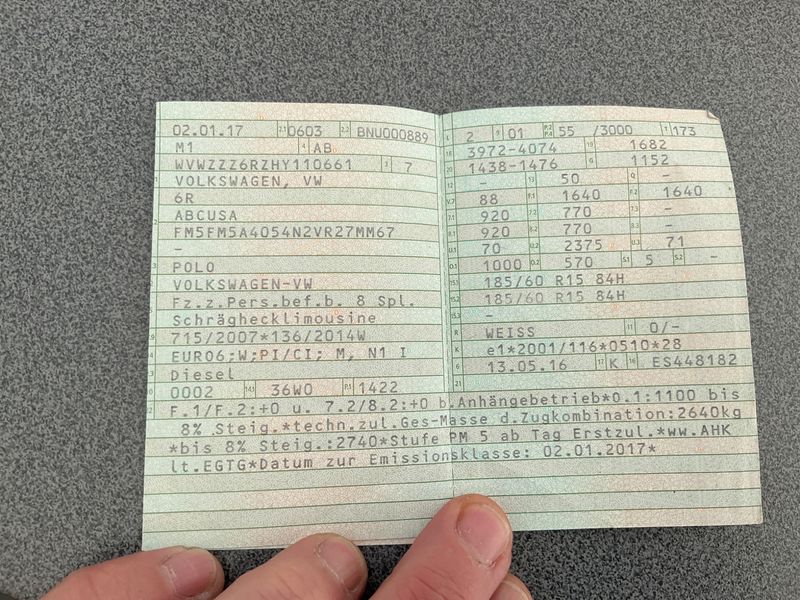 02.01.17 2.1 0603 2.2 BNU000889
M1 4 AB
WVWZZZ6RZHY110661 3 7
VOLKSWAGEN, VW
6R
ABCUSA
FM5FM5A4054N2VR27MM67
-
POLO
VOLKSWAGEN-VW
Fz.z.Pers.bef.b. 8 Spl.
Schräghecklimousine
715/2007*136/2014W
EURO6;W;PI/CI; M, N1 I
Diesel
0002 14.1 36W0 P.1 1422
L 2 9 01 P.2 P.4 55 /3000 T 173
18 3972-4074 19 1682
20 1438-1476 G 1152
12 - 13 50 Q -
V.7 88 F.1 1640 F.2 1640
7.1 920 7.2 770 7.3 -
8.1 920 8.2 770 8.3 -
U.1 70 U.2 2375 U.3 71
O.1 1000 O.2 570 S.1 5 S.2 -
15.1 185/60 R15 84H
15.2 185/60 R15 84H
15.3 -
R WEISS 11 0/-
K e1*2001/116*0510*28
6 13.05.16 17 K 16 ES448182
21
F.1/F.2:+0 u. 7.2/8.2:+0 b.Anhängebetrieb*O.1:1100 bis
8% Steig.*techn.zul.Ges-Masse d.Zugkombination:2640kg
*bis 8% Steig.:2740*Stufe PM 5 ab Tag Erstzul.*ww.AHK
lt.EGTG*Datum zur Emissionsklasse: 02.01.2017*